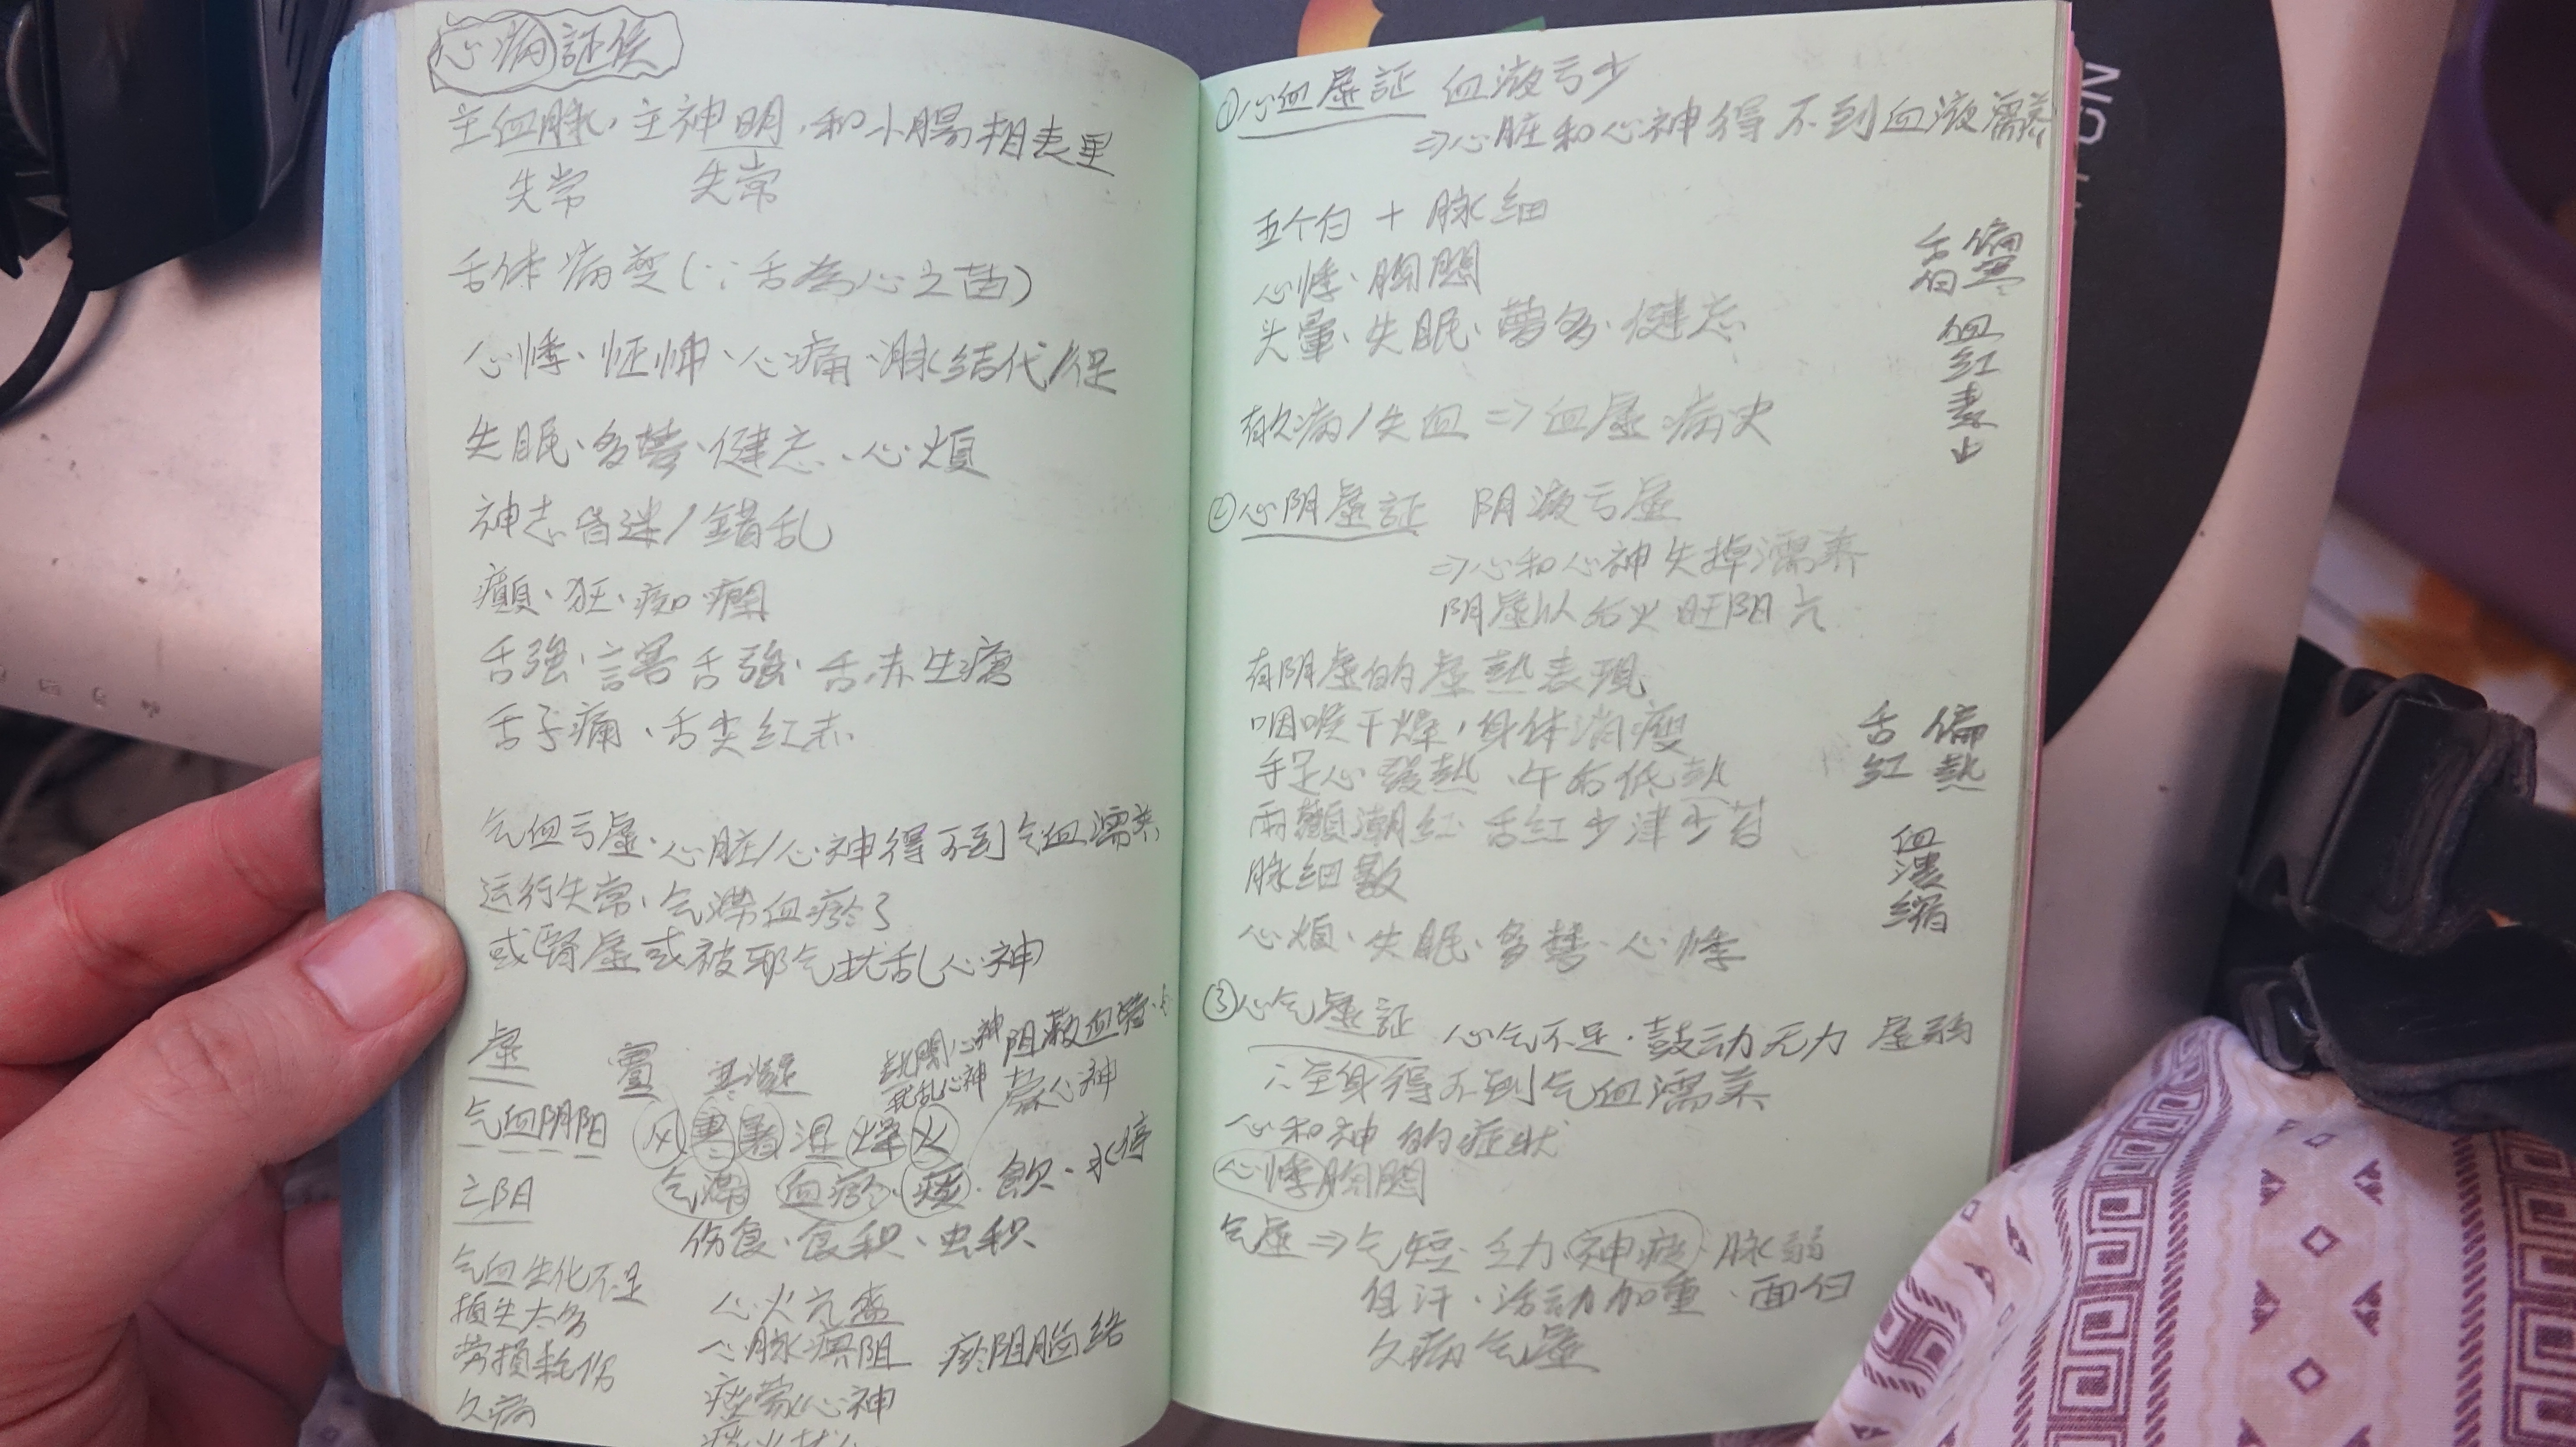 心病証候
主血脉，主神明，和小腸相表里
失常 失常
舌体病变(∵舌為心之苗)
心悸、怔忡、心痛、脉结代/促
失眠、多梦、健忘、心煩
神志昏迷/錯乱
癲、狂、痴、癇
舌強、語 舌強、舌赤生瘡
舌子痛、舌尖红赤
气血亏虚、心脏/心神得不到气血濡养
运行失常、气滞血瘀了
或腎虚或被邪气扰乱心神
虚 實 寒凝 扰乱心神 阻蔽血
蒙心神
气血阴阳 风寒暑湿燥火
亡阳 气滞 血瘀、痰、飲、水停
伤食、食积、虫积
气血生化不足
損失太多
劳損耗伤
久病
心火亢盛
心脉痹阻 瘀阻脑络
痰蒙心神
痰火扰心
①心血虚証 血液亏少
⇒心脏和心神得不到血液濡养
五个白 + 脉细
心悸、胸悶
头暈、失眠、夢多、健忘
有久病/失血⇒血虚病史
舌白 偏寒
血红素少
②心阴虚証 阴液亏虚
⇒心和心神失掉濡养
阴虚以后火旺阳亢
有阴虚的虚熱表現
咽喉干燥，身体消瘦
手足心發熱、午后低熱
兩顴潮红 舌红少津少苔
脉细數
心煩、失眠、多梦、心悸
舌红 偏熱
血濃縮
③心气虚証 心气不足、鼓动无力 虚弱
∴全身得不到气血濡养
心和神的症状
心悸胸悶
气虚⇒气短、乏力、神疲、脉弱
自汗、活动加重、面白
久病气虚